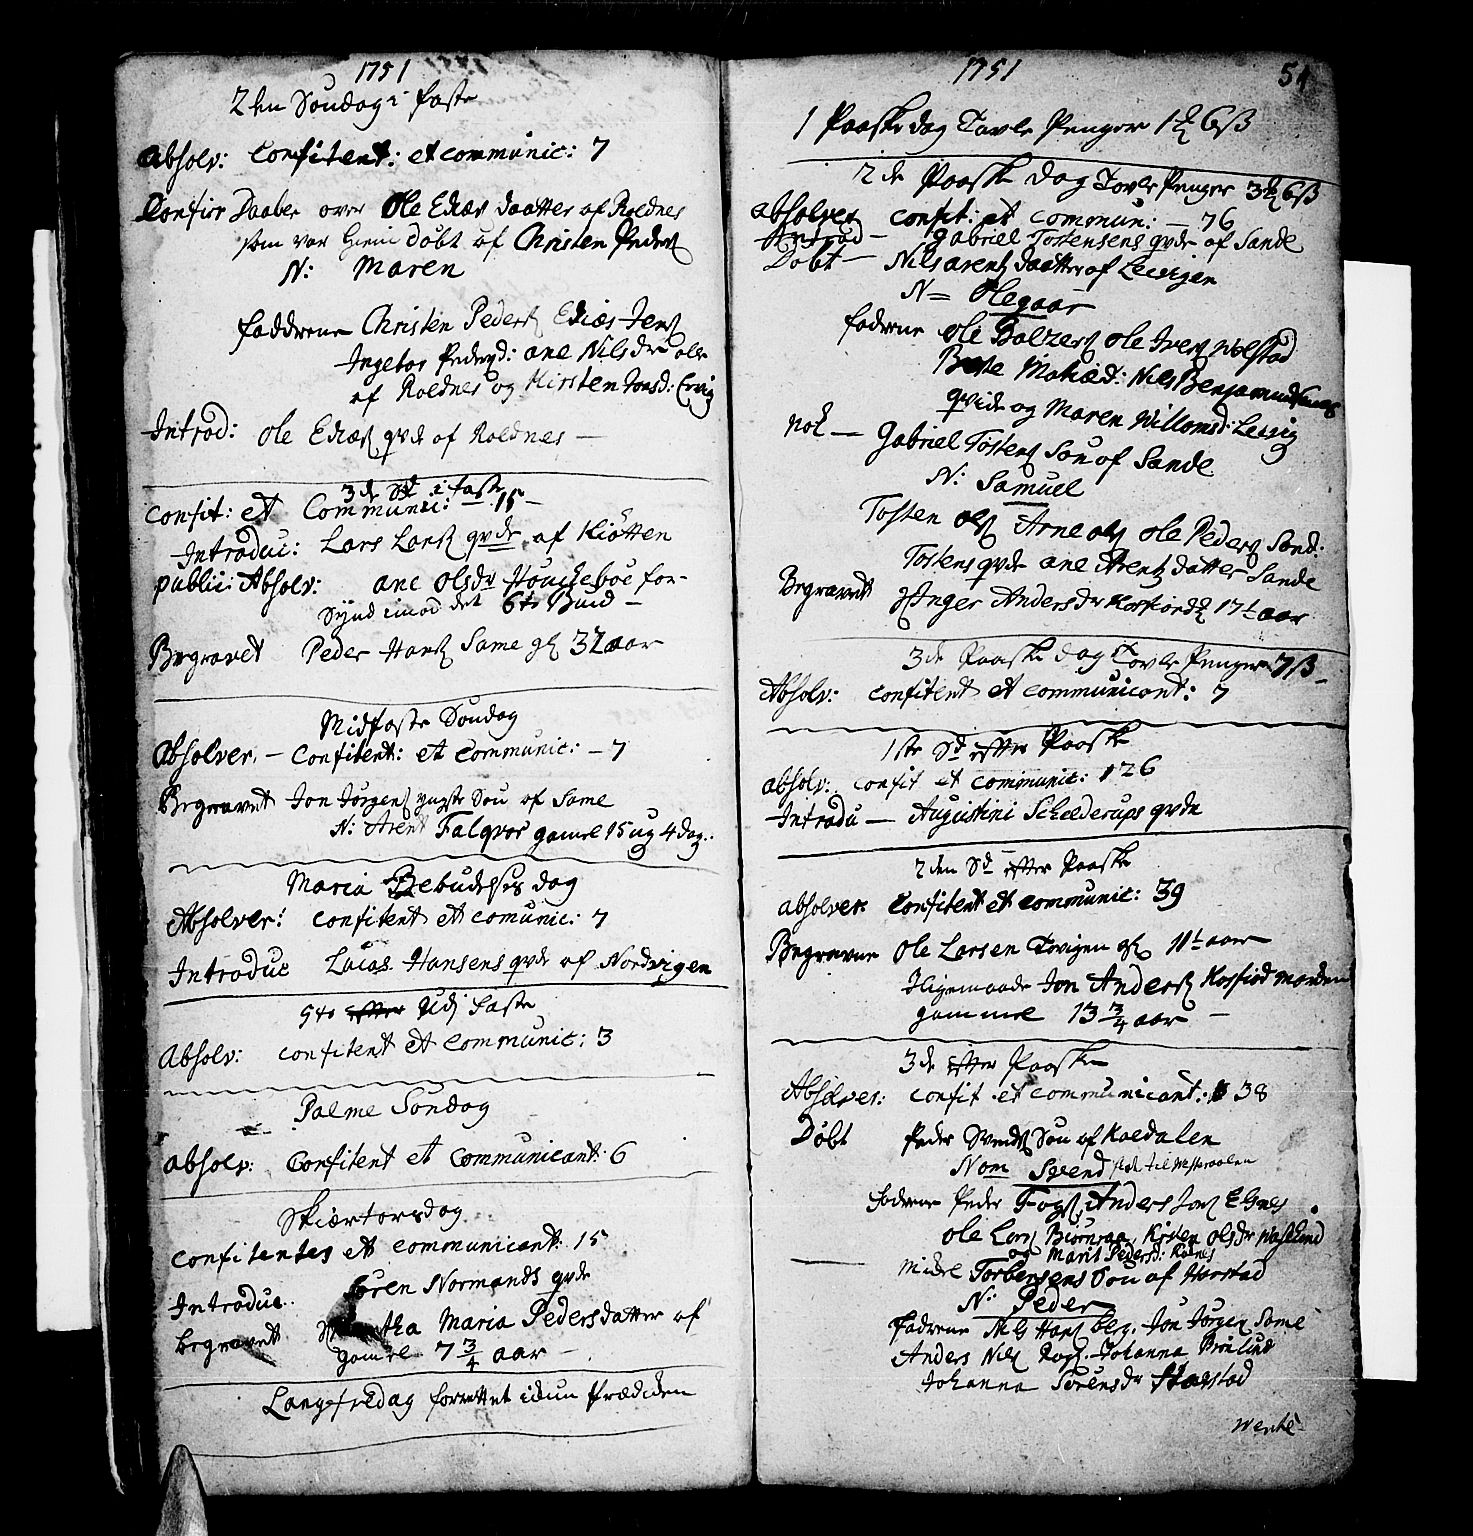 1751
2den Søndag i faste
Absolv: Confitent: et communic: 7
Confir Daaben over Ole Eliæs daatter af Roldnes
som var hiemdøbt af Christen Peders
N: Maren
faddrene Christen Peders Eliæs Jens
Ingebor Pedersd: ane Nilsdr alle
af Roldnes og Kirsten Jonsd:
Introd: Ole Eliæs qvde af Roldnes —
3de Sd i faste
Confit: et Communi: — 15 —
Introduc: Lars Lars qvde af Kiøtten
public: Absolv: ane olsdr for-
Synd imod det 6te Bud —
Begravet Peder Hans Same gl 32 aar
Midfaste Søndag
Absolver. — Confitent: et Communic: — 7
Begravet Jon Jørgens yngste Søn af Same
N: Arent Falqvor gamel 15 ug 4 dag.
Maria Bebudelses dag
Absolver: Confitent et comunic: 7
Introduc Lucas Hansens qvde af Nordvigen
5te udi faste
Absolv: confitent et communic: 3
Palme Søndag
absolv: Confitent et Communicant: 6
Skiærtorsdag
Confitentes et communicant: 15
Introduc. Søren Normands qvde
begravet Maria Pedersdatter af
gamel 7 3/4 aar —
Langfredag forrettet iden Prædiken
1751
54
1 Paaske dag Tavle Penger 1 6ß
2de Paaske dag Tavle Penger 3 6ß
absolver confit: et commun: — 76
Introd — Gabriel Tostensens qvde af Sande
Døbt — Nils arents daatter af Leivigen
N = Olegaar
fadrene Ole Balzers Ole Ivers Molstad
Mahiæd: Nils Benjamins
qvide og Maren Willomsd: Levig
not — Gabriel Tostens Søn af Sande
N: Samuel
Tosten ols Arne ols Ole Peders Sand:
Tostens qvde ane Arents datter Sande
Begravet Inger Andersdr Korsfiord 17½ aar
3de Paaske dag Tavle Penger 7ß —
Absolv: confitent et communicant: 7
1ste Sd efter Paaske
absolv: confit et communic: 126
Introdu — Augustini Schielderups qvde
2den Sd efter Paaske
absolver. Confitent et communic: 39
Begravne Ole Larsen Torvigen gl 11½ aar
Iligemaade Jon Anders Korsfiord
gammel 13 3/4 aar —
3de efter Paaske
Absolver: confit et communicant: 38
Døbt Peder Svends Søn af Kaldalen
Nom Svend
fadrene Peder Anders Jons
Ole Lars Kirsten olsdr
og Marit Pedersd:
— Mickel Torbersens Søn af Harstad
N: Peder
fadrene Nils Hans berg. Jon Jørgen Same
Anders Nils Johanna
Johanna Sørensdr Harstad